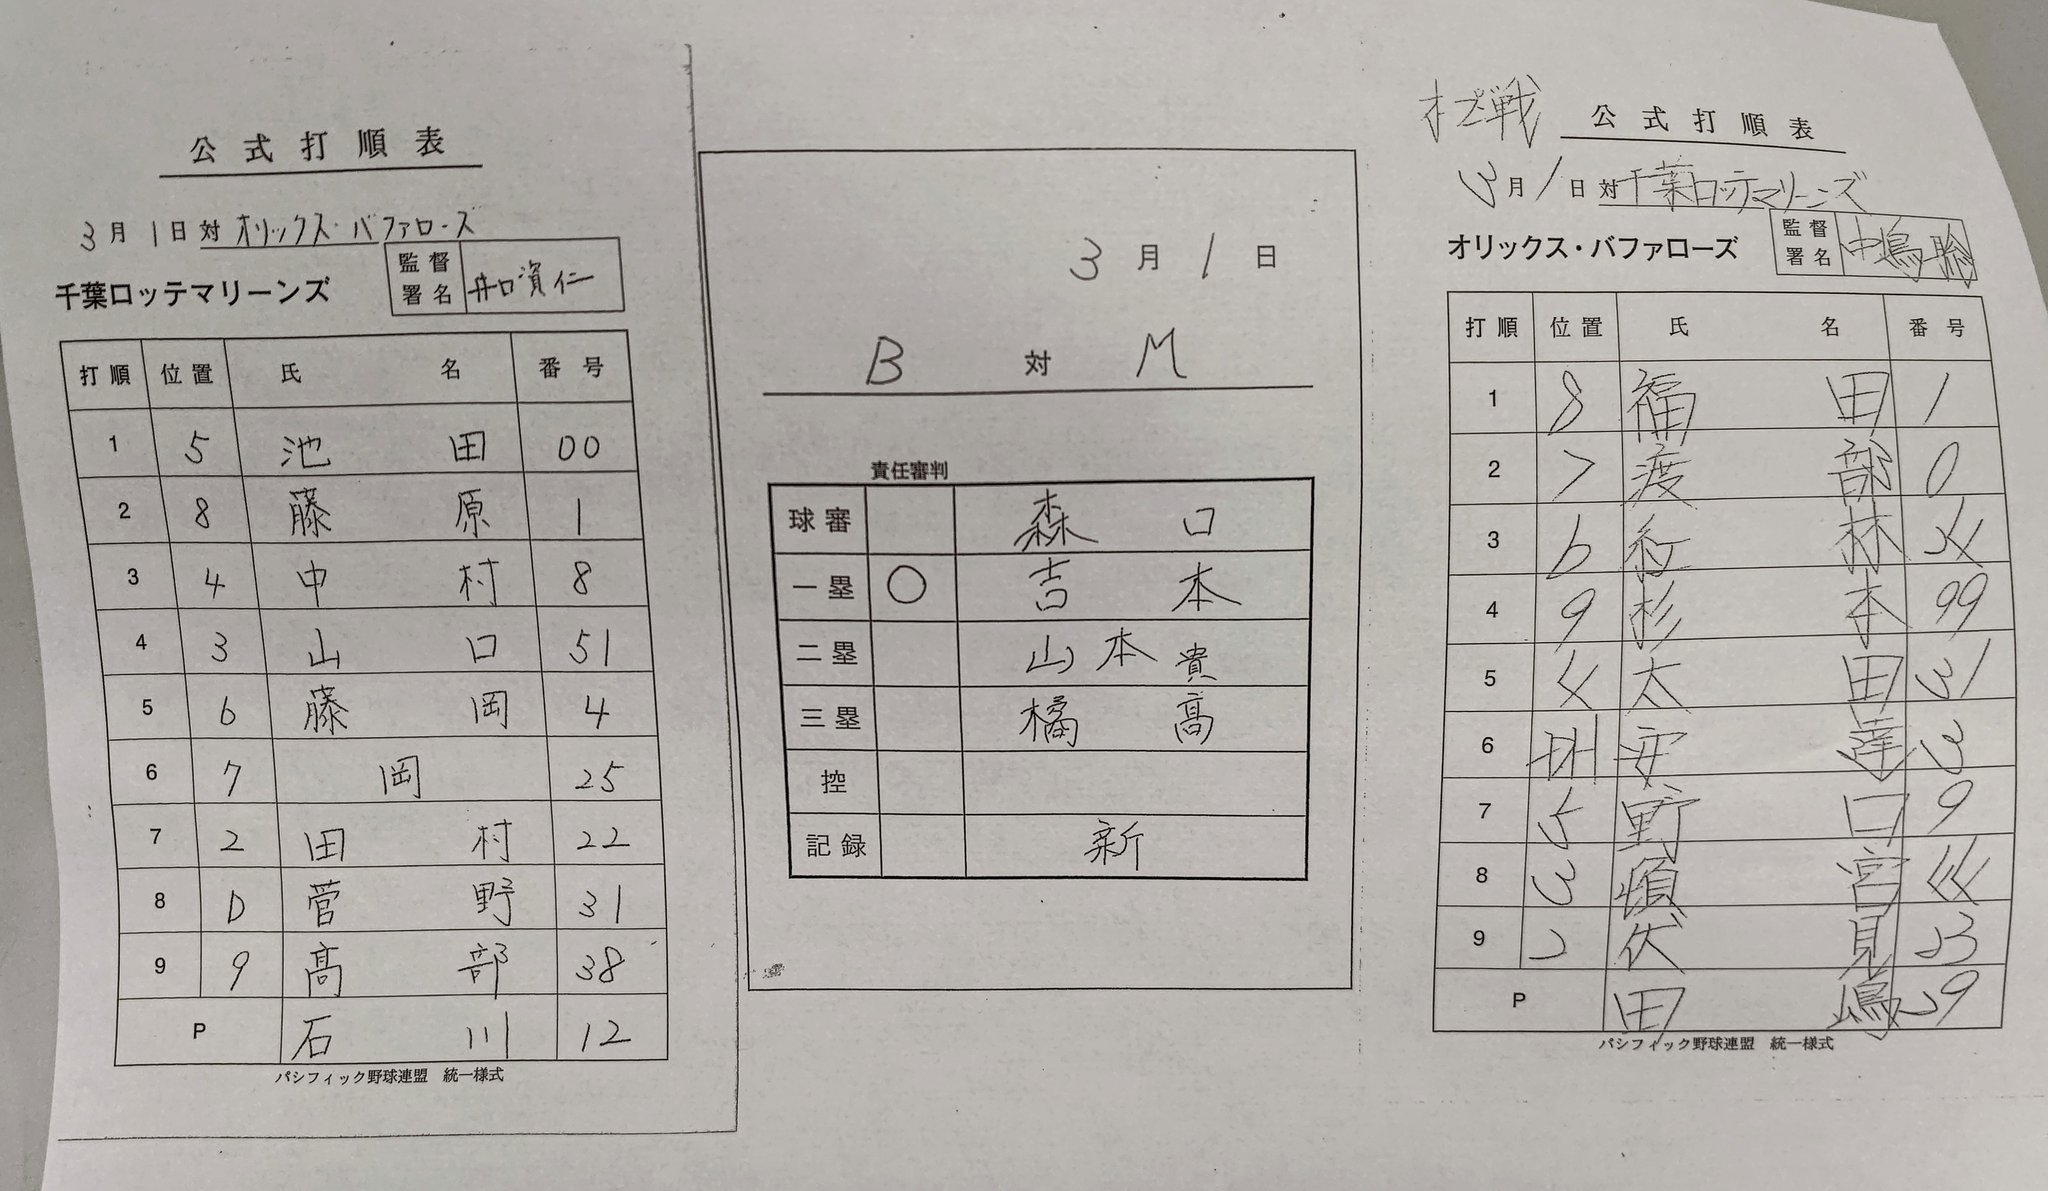 公式打順表
3月1日対オリックス・バファローズ
千葉ロッテマリーンズ 監督署名 井口資仁
打順 位置 氏名 番号
1 5 池田 00
2 8 藤原 1
3 4 中村 8
4 3 山口 51
5 6 藤岡 4
6 7 岡 25
7 2 田村 22
8 D 菅野 31
9 9 髙部 38
P 石川 12
パシフィック野球連盟 統一様式
3月1日
B 対 M
責任審判
球審 森口
一塁 ○ 吉本
二塁 山本貴
三塁 橘髙
控
記録 新
オープン戦 公式打順表
3月1日対千葉ロッテマリーンズ
オリックス・バファローズ 監督署名 中嶋聡
打順 位置 氏名 番号
1 8 福田 1
2 7 渡部 0
3 6 紅林 24
4 9 杉本 99
5 4 太田 31
6 DH 安達 3
7 5 野口 9
8 3 頓宮 44
9 2 伏見 23
P 田嶋 29
パシフィック野球連盟 統一様式